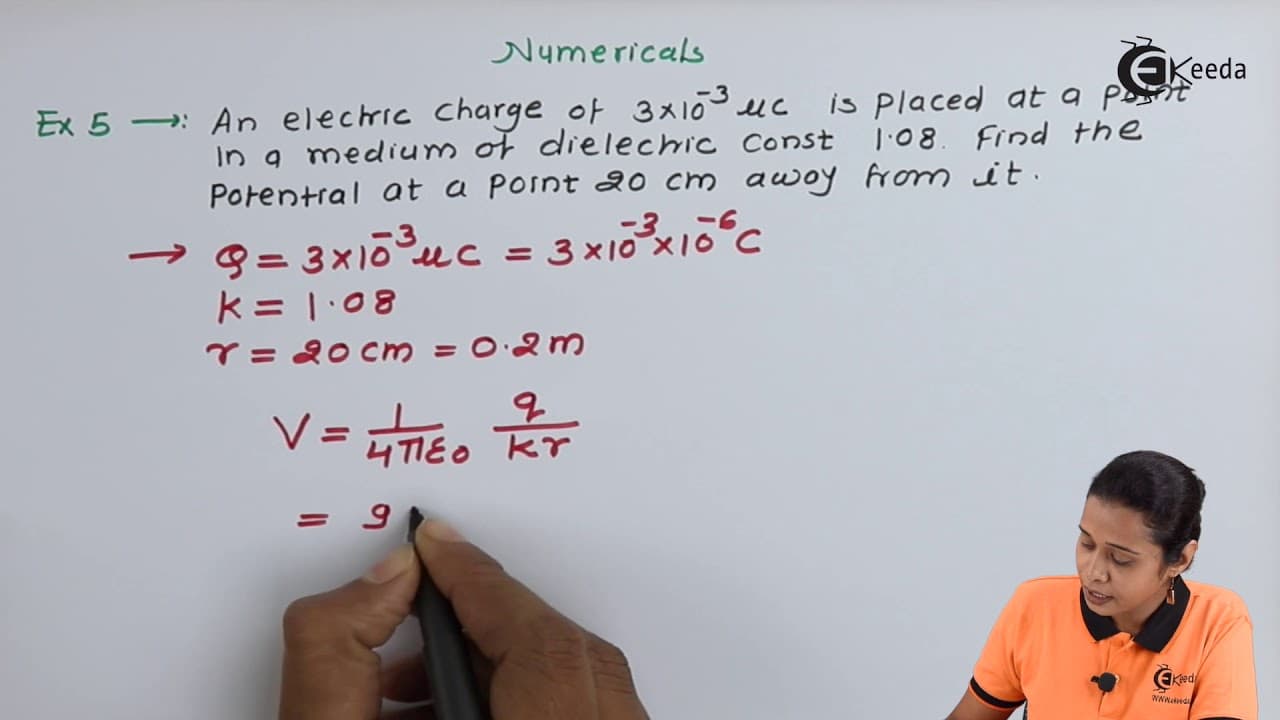 Numericals
EKeeda
Ex 5 →: An electric charge of 3×10⁻³ μc is placed at a point
in a medium of dielectric const 1.08. Find the
Potential at a point 20 cm away from it.
→ Q = 3×10⁻³ μc = 3×10⁻³×10⁻⁶ C
k = 1.08
r = 20 cm = 0.2m
V = 1/4πε0 q/kr
= 9
EKeeda